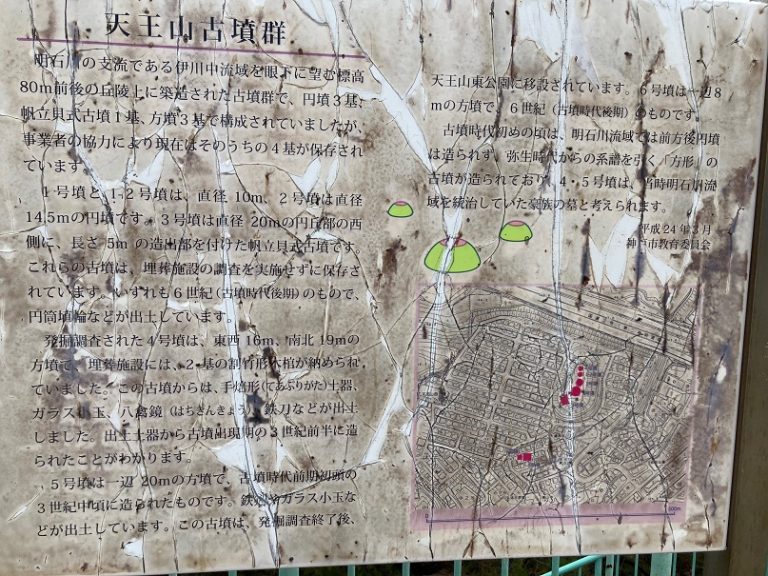 天王山古墳群
明石川の支流である伊川中流域を眼下に望む標高
80m前後の丘陵上に築造された古墳群で、円墳3基、
帆立貝式古墳1基、方墳3基で構成されていましたが、
事業者の協力により現在はそのうちの4基が保存され
ています。
1号墳と1-2号墳は、直径10m、2号墳は直径
14.5mの円墳です。3号墳は直径20mの円丘部の西
側に、長さ5mの造出部を付けた帆立貝式古墳です。
これらの古墳は、埋葬施設の調査を実施せずに保存さ
れています。いずれも6世紀(古墳時代後期)のもので、
円筒埴輪などが出土しています。
発掘調査された4号墳は、東西16m、南北19mの
方墳で、埋葬施設には、2基の割竹形木棺が納められ
ていました。この古墳からは、手焙形(てあぶりがた)土器、
ガラス小玉、八禽鏡(はちきんきょう)、鉄刀などが出土
しました。出土土器から古墳出現期の3世紀前半に造
られたことがわかります。
5号墳は一辺20mの方墳で、古墳時代前期初頭の
3世紀中頃に造られたものです。鉄 やガラス小玉な
どが出土しています。この古墳は、発掘調査終了後、
天王山東公園に移設されています。6号墳は一辺8
mの方墳で、6世紀(古墳時代後期)のものです。
古墳時代初めの頃は、明石川流域では前方後円墳
は造られず、弥生時代からの系譜を引く「方形」の
古墳が造られており、4・5号墳は、当時明石川流
域を統治していた豪族の墓と考えられます。
平成24年3月
神戸市教育委員会